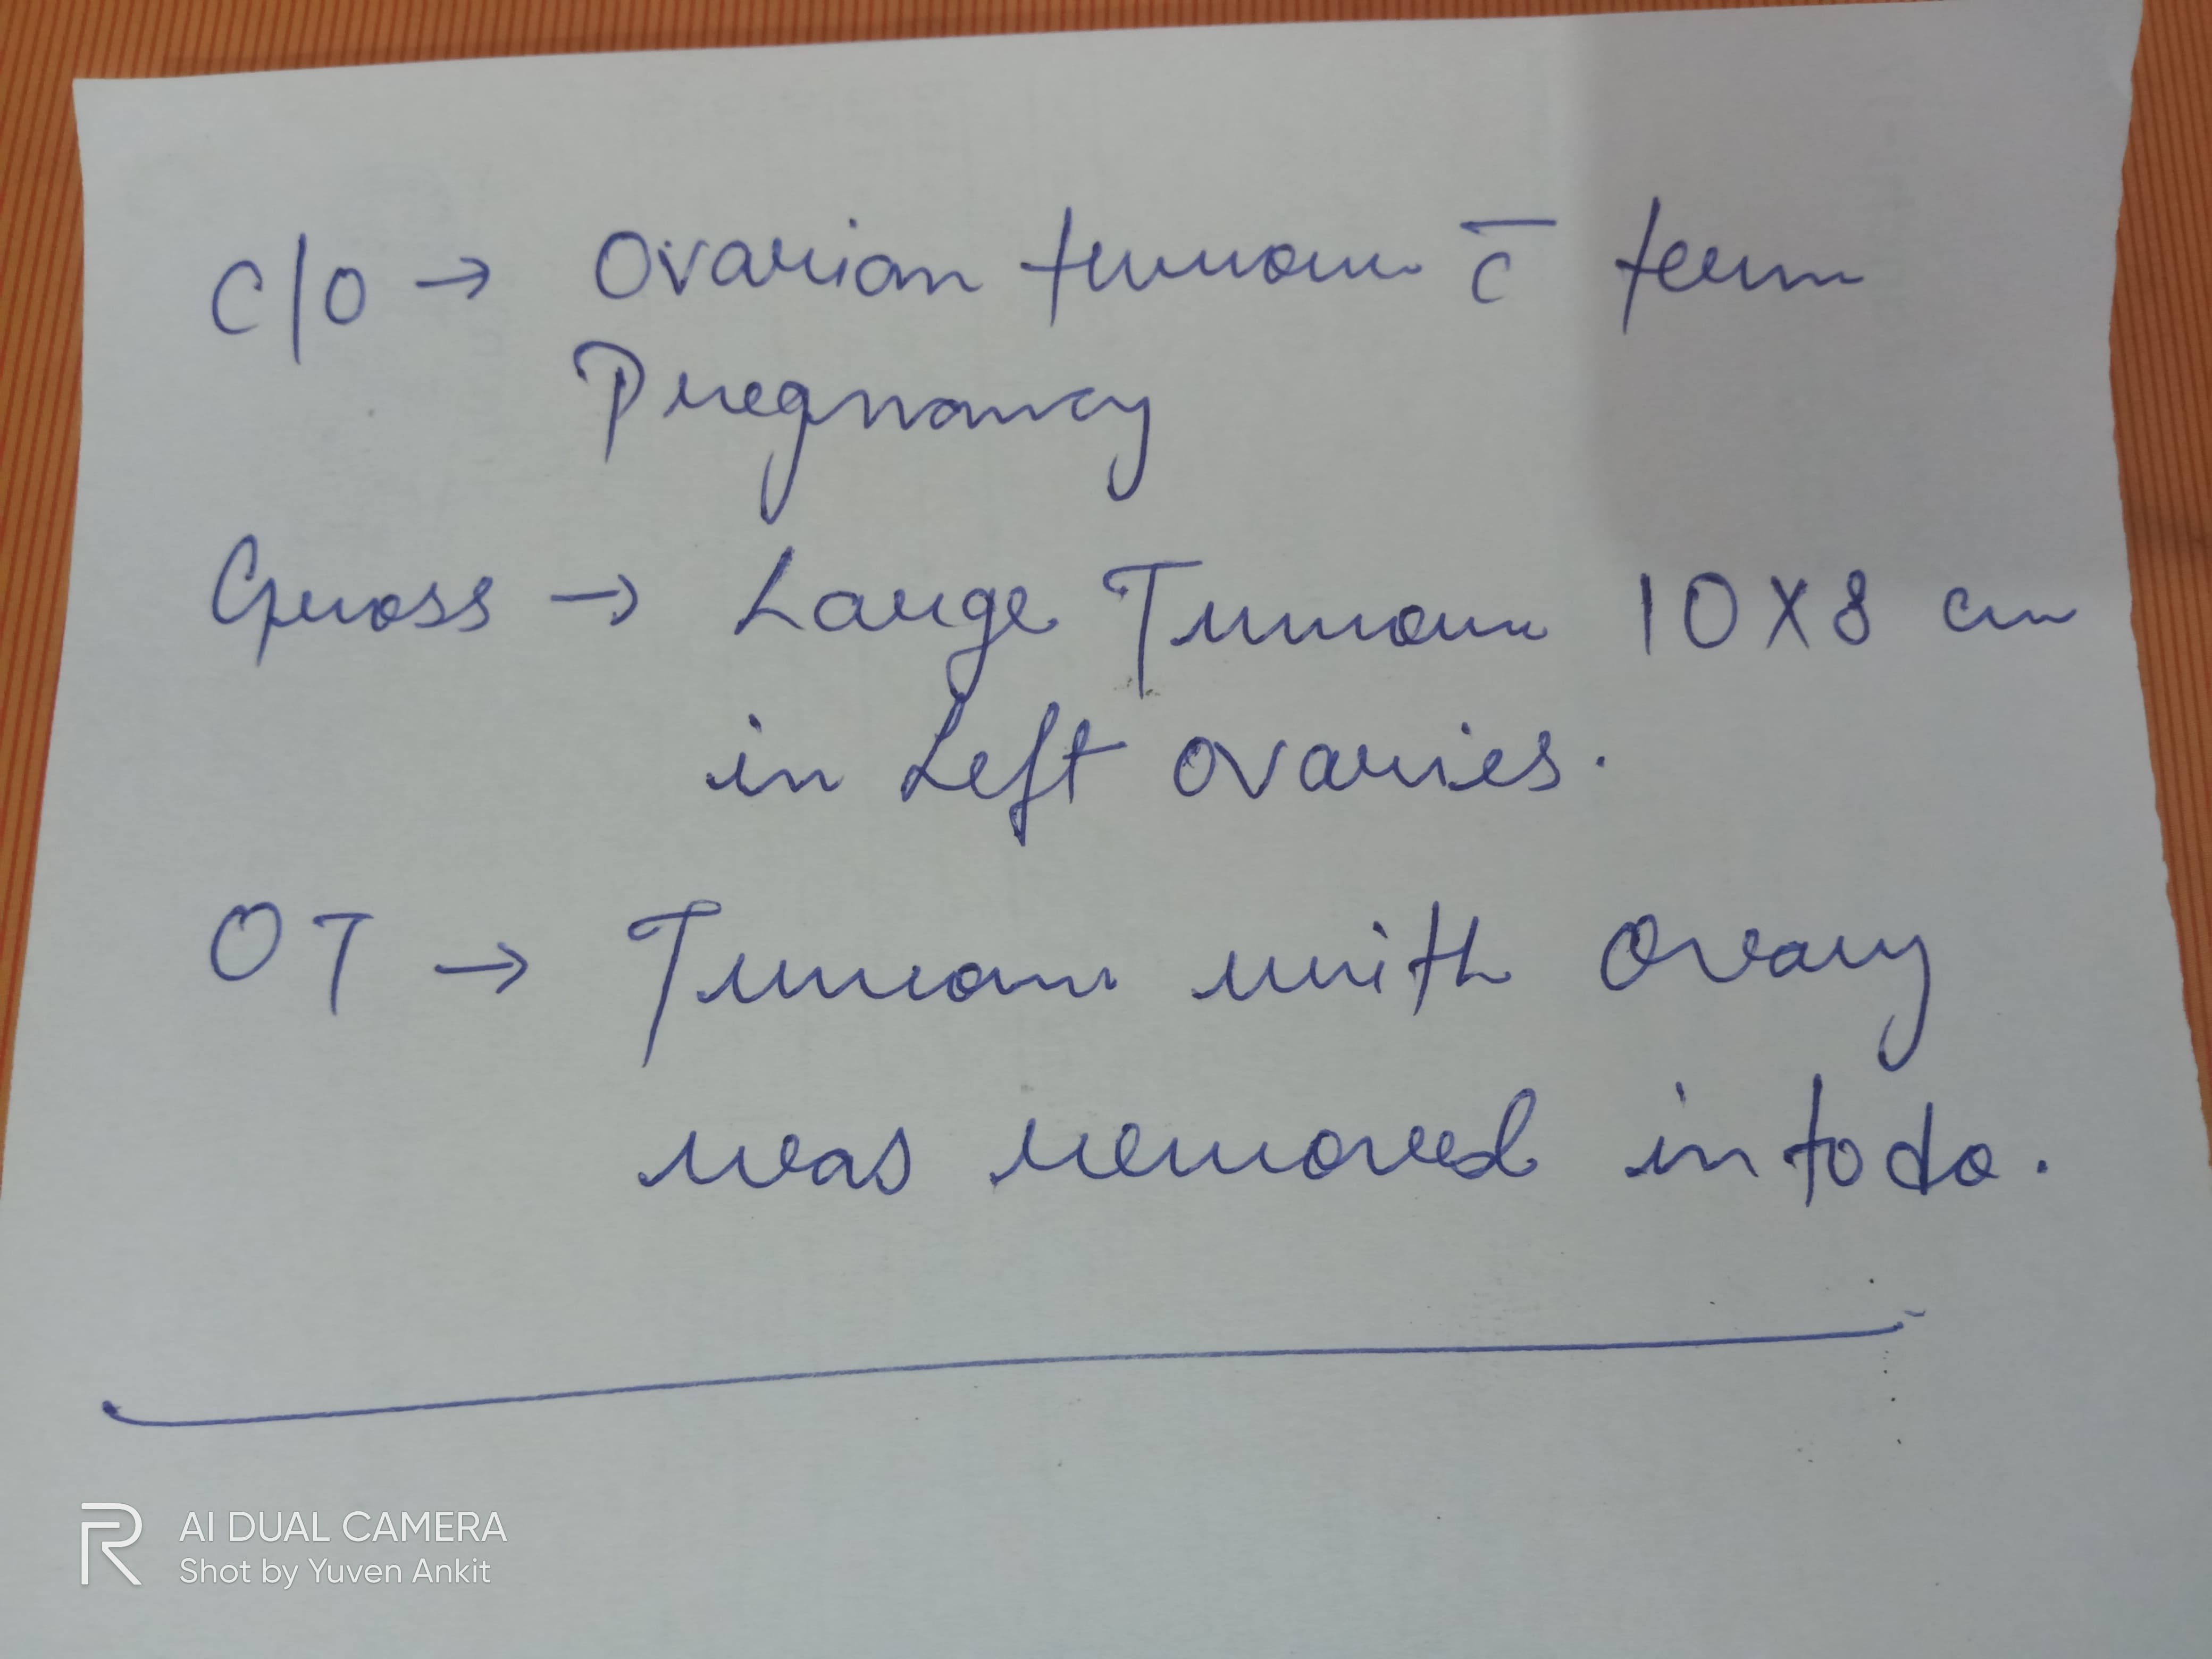 C/O → Ovarian tumour c̄ term
Pregnancy
Gross → Large Tumour 10X8 cm
in Left ovaries.
OT → Tumour with Ovary
was removed in todo.
AI DUAL CAMERA
Shot by Yuven Ankit